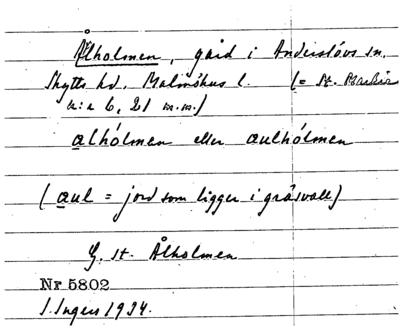 Ålholmen, gård i Anderslövs sn.
Skytts hd, Malmöhus l. (= St. Markie
n:a 6, 21 m.m.)
alhólmen eller aulhólmen
(aul = jord som ligger i gräsvall)
G. st. Ålholmen
Nr 5802
I. Ingers 1934.